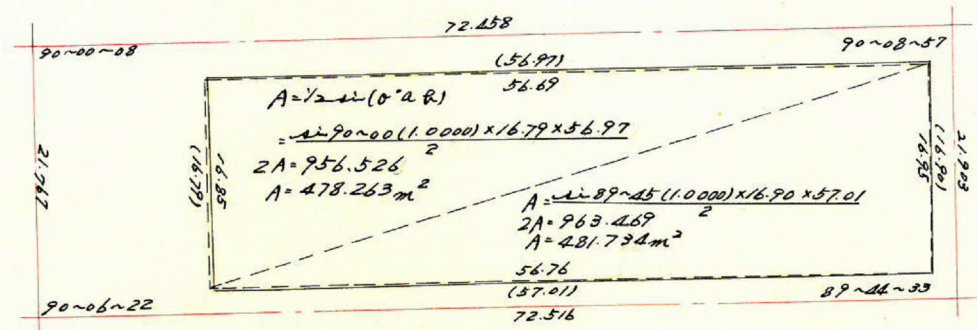 72.458
90~00~08
90~08~57
(56.97)
56.69
A=1/2 sin(θ°ab)
= sin90~00(1.0000)×16.79×56.97
2
2A=956.526
A=478.263m²
21.767
(16.79)
16.85
16.95
(16.90)
21.903
A= sin89~45(1.0000)×16.90×57.01
2
2A=963.469
A=481.734m²
56.76
(57.01)
90~06~22
89~44~33
72.516